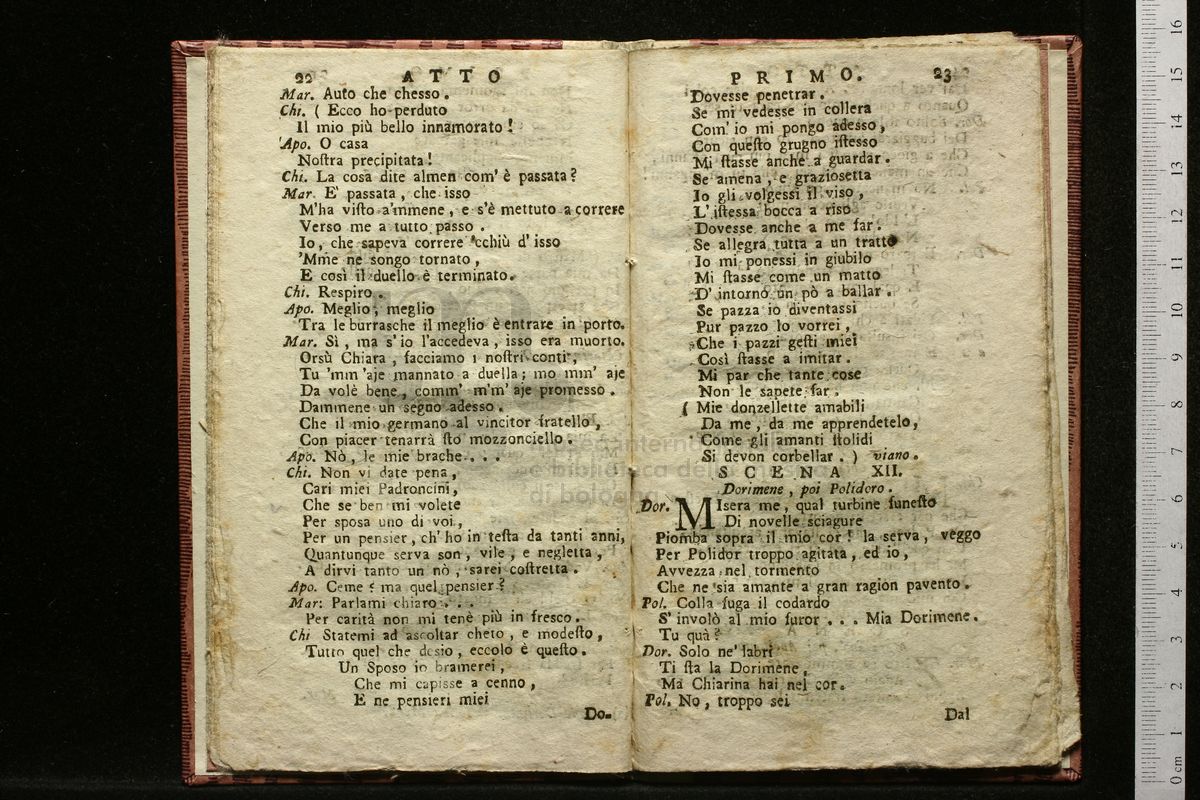 22 ATTO
Mar. Auto che chesso.
Chi. ( Ecco ho perduto
Il mio più bello innamorato!
Apo. O casa
Noſtra precipitata!
Chi. La cosa dite almen com' è passata?
Mar. E' passata, che isso
M'ha viſto a'mmene, e s'è mettuto a correre
Verso me a tutto passo.
Io, che sapeva correre cchiù d'isso
'Mme ne songo tornato,
E così il duello è terminato.
Chi. Respiro.
Apo. Meglio, meglio
Tra le burrasche il meglio è entrare in porto.
Mar. Sì, ma s'io l'accedeva, isso era muorto.
Orsù Chiara, facciamo i noſtri conti,
Tu 'mm 'aje mannato a duella; mo mm' aje
Da volè bene, comm' m'm' aje promesso.
Dammene un segno adesso.
Che il mio germano al vincitor fratello,
Con piacer tenarrà ſto mozzonciello.
Apo. Nò, le mie brache...
Chi. Non vi date pena,
Cari miei Padroncini,
Che se ben mi volete
Per sposa uno di voi,
Per un pensier, ch' ho in teſta da tanti anni,
Quantunque serva son, vile, e negletta,
A dirvi tanto un nò, sarei coſtretta.
Apo. Ceme? ma quel pensier?
Mar: Parlami chiaro...
Per carità non mi tenè più in fresco.
Chi Statemi ad ascoltar cheto, e modeſto,
Tutto quel che desio, eccolo è queſto.
Un Sposo io bramerei,
Che mi capisse a cenno,
E ne pensieri miei
Do-
PRIMO. 23
Dovesse penetrar.
Se mi vedesse in collera
Com' io mi pongo adesso,
Con queſto grugno iſtesso
Mi ſtasse anche a guardar.
Se amena, e graziosetta
Io gli volgessi il viso,
L'iſtessa bocca a riso
Dovesse anche a me far.
Se allegra tutta a un tratto
Io mi ponessi in giubilo
Mi ſtasse come un matto
D'intorno un pò a ballar.
Se pazza io diventassi
Pur pazzo lo vorrei,
Che i pazzi geſti miei
Così ſtasse a imitar.
Mi par che tante cose
Non le sapete far.
( Mie donzellette amabili
Da me, da me apprendetelo,
Come gli amanti ſtolidi
Si devon corbellar. ) viano.
SCENA XII.
Dorimene, poi Polidoro.
Dor. MIsera me, qual turbine funeſto
Di novelle sciagure
Piomba sopra il mio cor! la serva, veggo
Per Polidor troppo agitata, ed io,
Avvezza nel tormento
Che ne sia amante a gran ragion pavento.
Pol. Colla fuga il codardo
S' involò al mio furor... Mia Dorimene.
Tu quà?
Dor. Solo ne' labri
Ti ſta la Dorimene,
Ma Chiarina hai nel cor.
Pol. No, troppo sei
Dal